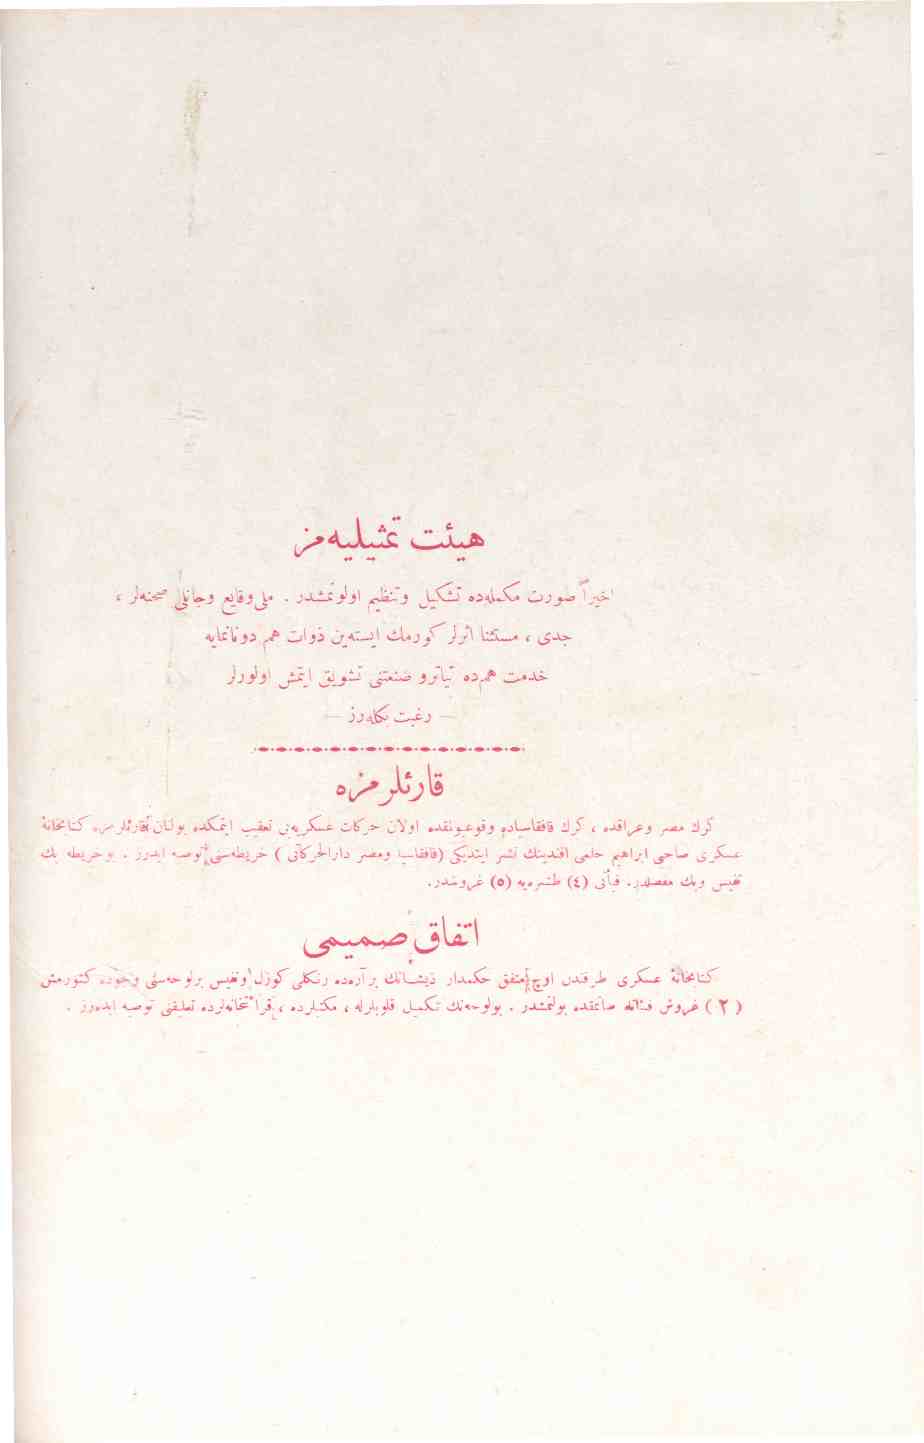 هیئت تمثیلیه‌مز
اخیراً صورت مکمله‌ده تشکیل و تنظیم اولونمشدر . ملی وقایع وجانلی صحنه‌لر ،
جدی ، مستثنا اثرلر کورمك ایسته‌ین ذوات هم دونانمایه
خدمت هم‌ده تیاترو صنعتنی تشویق ایتمش اولورلر
— رغبت بکله‌رز —
قارئلرمزه
کرك مصر وعراقده ، کرك قافقاسیاده وقوعبولمقده اولان حرکات عسکریه‌یی تعقیب ایتمکده بولنان قارئلرمزه کتابخانهٔ
عسکری صاحبی ابراهیم حلمی افندینك نشر ایتدیکی (قافقاسیا ومصر دارالحرکاتی ) خریطه‌سنی توصیه ایدرز . بوخریطه بك
نفیس وبك مفصلدر. فیأتی (٤) طشره‌یه (٥) غروشدر.
اتفاق صمیمی
کتابخانهٔ عسکری طرفندن اوچ متفق حکمدار ذیشانك برآره‌ده رنکلی کوزل ونفیس برلوحه‌سنی وجوده کتورمش
( ٢ ) غروش فیئاتله صاتلمقده بولنمشدر . بولوحه‌نك تکمیل قلوبلرله ، مکتبلرده ، قرائتخانه‌لرده تعلیقنی توصیه ایده‌رز .